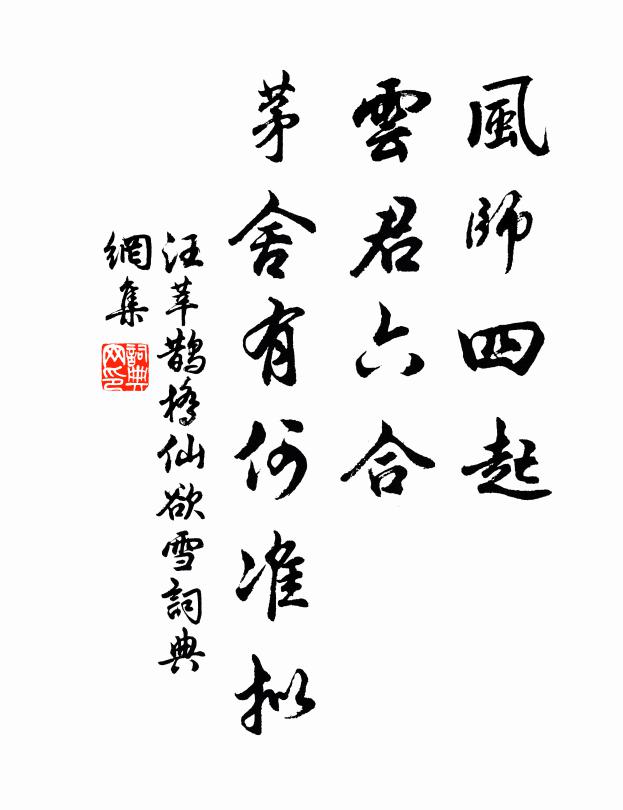 風師四起
雲君六合
茅舍有何准拟
汪莘鵲橋仙欲雪詞典
網集
詞典網印